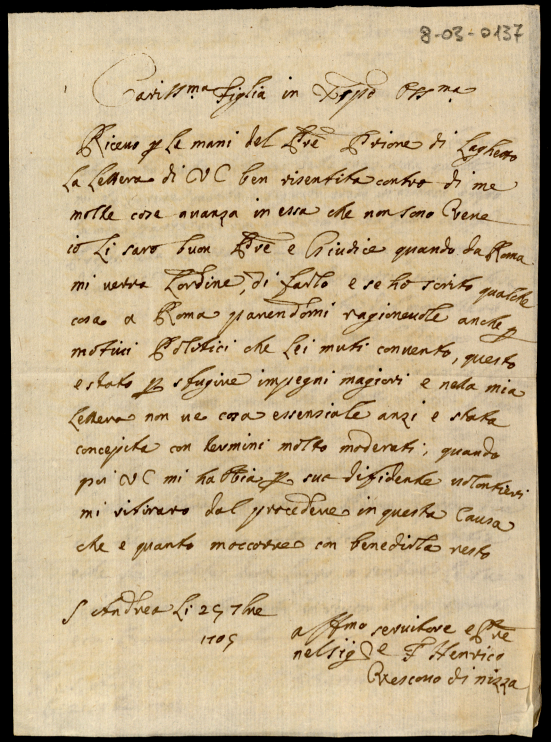 8-03-0137
Cariss.ma figlia in Xpto Oss.ma
Riceuo p le mani del Pre Prione di Laghetto
La Lettera di VC ben risentita contro di me
molte cose auanza in essa che non sono Vere
io Li saro buon Pre e Giudice quando da Roma
mi verra Lordine, di farlo e se ho scrito qualche
cosa a Roma parendomi ragioneuole anche p
motiui Polotici che Lei muti conuento, questo
e stato p sfugire impegni magiori e nella mia
Lettera non ue cosa essenziale anzi e stata
concepita con termini molto moderati, quando
poi VC mi habbia p suo diffidente volontieri
mi ritiraro dal procedere in questa Causa
che e quanto moccorre con benedirla resto
S Andrea Li 25 7bre
1705
aff.mo seruitore e Pre
nel Sig.e F Henrico
Vescouo di nizza